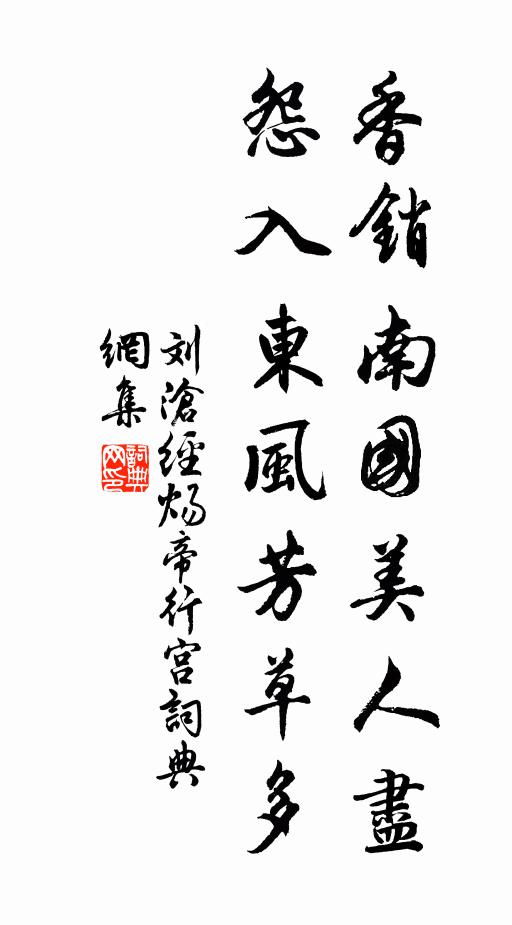 香銷南國美人盡
怨入東風芳草多
刘滄經煬帝行宮詞典
網集
詞典
网印